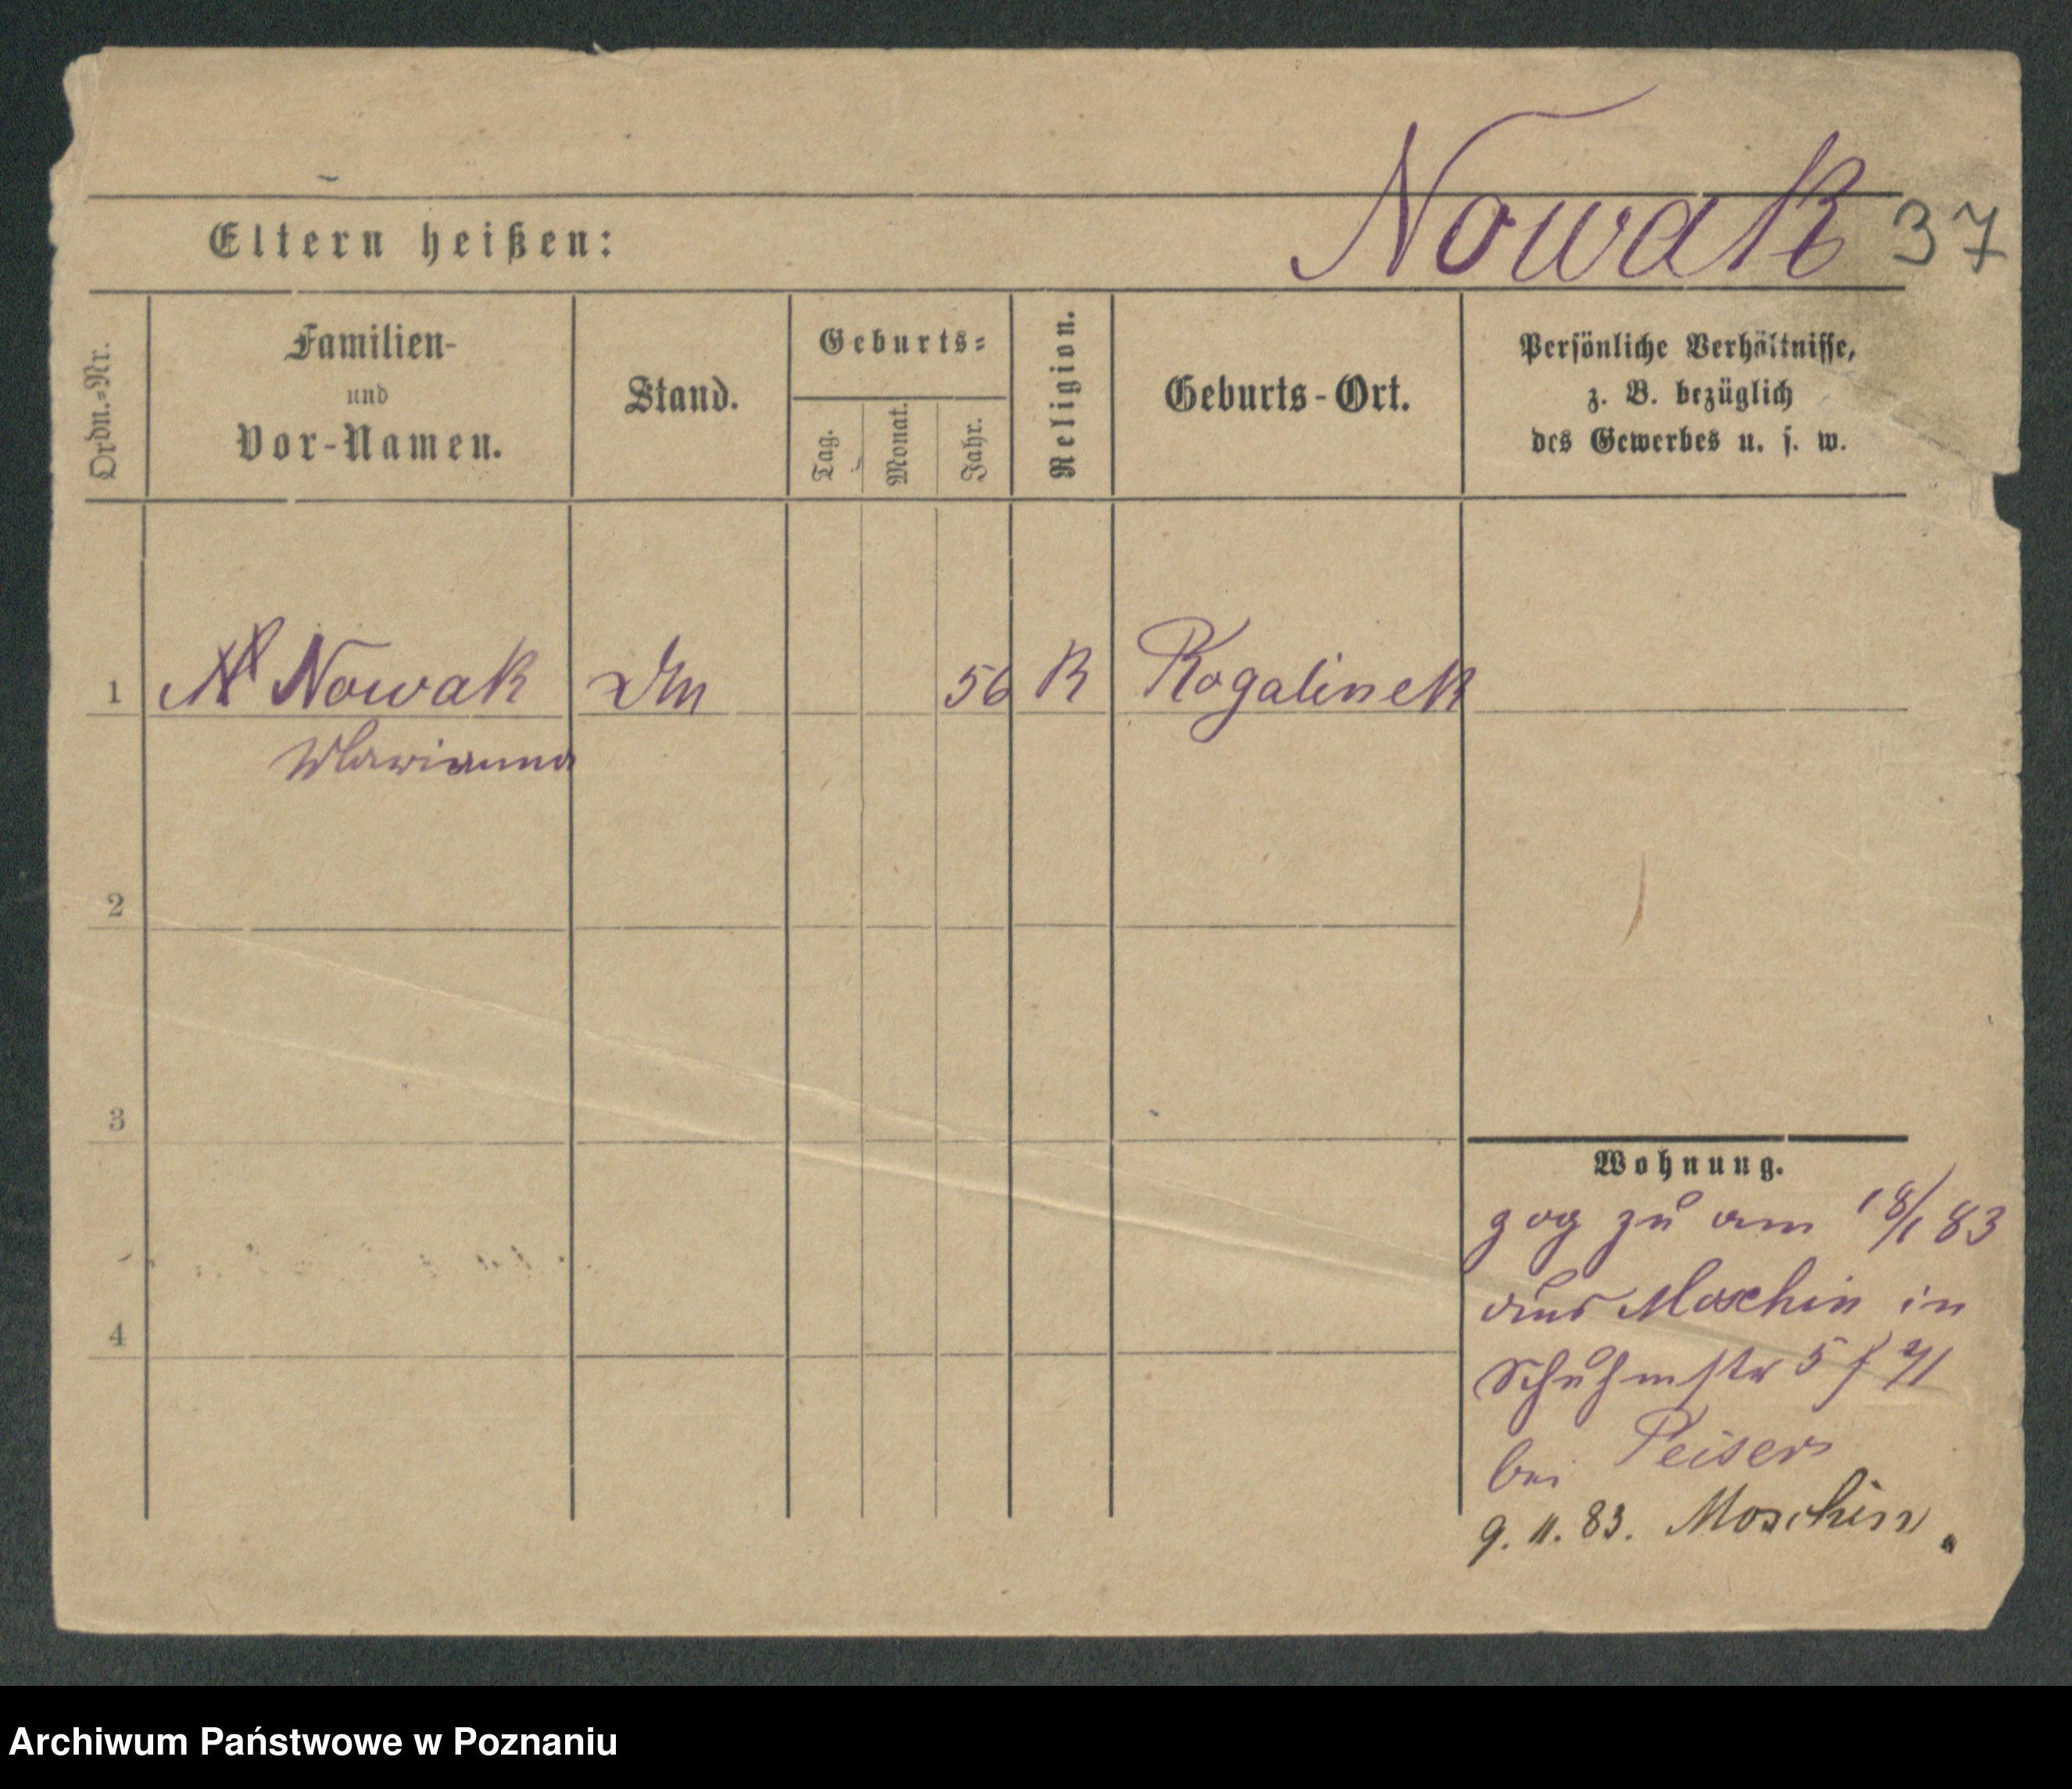 Nowak 37
Eltern heißen:
Ordn.=Nr.
Familien-
und
Vor-Namen.
Stand.
Geburts=
Tag.
Monat.
Jahr.
Religion.
Geburts-Ort.
Persönliche Verhältnisse,
z. B. bezüglich
des Gewerbes u. s. w.
1 Nowak 56 R Rogalinek
Marianna
2
3
4
Wohnung.
zog zu am 18/1 83
aus Moschin in
Schuhmstr 5
bei Peiser
9. 11. 83. Moschin.
Archiwum Państwowe w Poznaniu